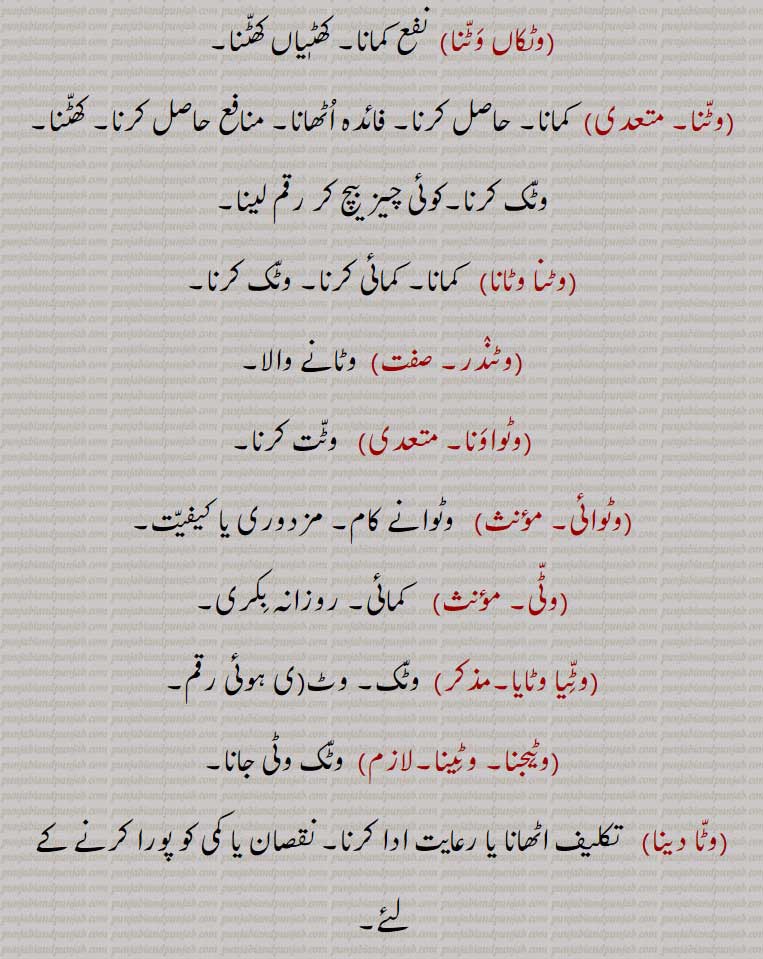 (وٹکاں وَٹّنا) نفع کمانا۔ کھٹیاں کھٹّنا۔
(وٹّنا۔ متعدی) کمانا۔ حاصل کرنا۔ فائدہ اُٹھانا۔ منافع حاصل کرنا۔ کھٹّنا۔
وٹّک کرنا۔کوئی چیز بیچ کر رقم لینا۔
(وٹنا وٹانا) کمانا۔ کمائی کرنا۔ وٹّک کرنا۔
(وٹنڈر۔ صفت) وٹانے والا۔
(وٹواوَنا۔ متعدی) وٹّت کرنا۔
(وٹوائی۔ مؤنث) وٹوانے کام۔ مزدوری یا کیفیّت۔
(وٹّی۔ مؤنث) کمائی۔ روزانہ بِکری۔
(وٹِّیا وٹایا۔مذکر) وٹّک۔ وٹ(ی ہوئی رقم۔
(وٹیجنا۔ وٹِینا۔لازم) وٹّک وٹی جانا۔
(وٹّا دینا) تکلیف اٹھانا یا رعایت ادا کرنا۔ نقصان یا کمی کو پورا کرنے کے
لئے۔